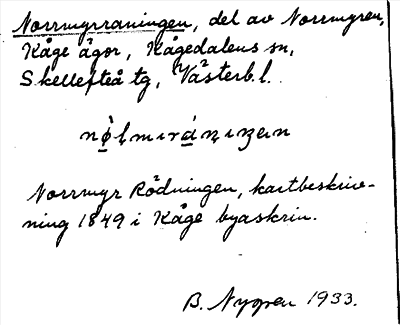 Norrmyrraningen, del av Norrmyren,
Kåge ägor, Kågedalens sn,
Skellefteå tg, Västerb. l.
Norrmyr Rödningen, kartbeskriv-
ning 1849 i Kåge byaskrin.
B. Nygren 1933.